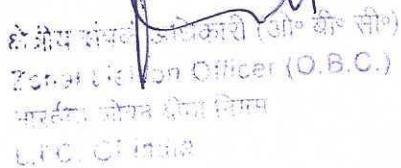 क्षेत्रीय संपर्क अधिकारी (ओ॰ बी॰ सी॰)
Zonal Liaison Officer (O.B.C.)
भारतीय जीवन बीमा निगम
L.I.C. Of India